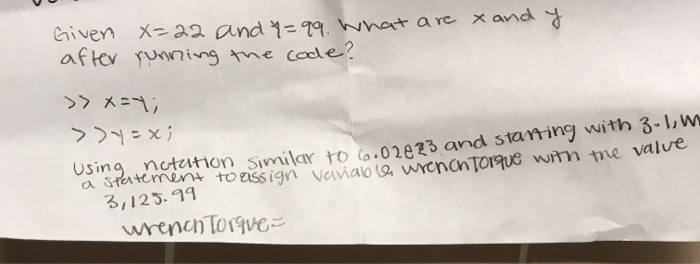 Given x=22 and y=99. What are x and y
after running the code?
>> x=y;
>>y=x;
Using notation similar to 6.02e23 and starting with 3.1, w
a statement to assign variable wrenchTorque with the value
3,125.99
wrenchTorque=